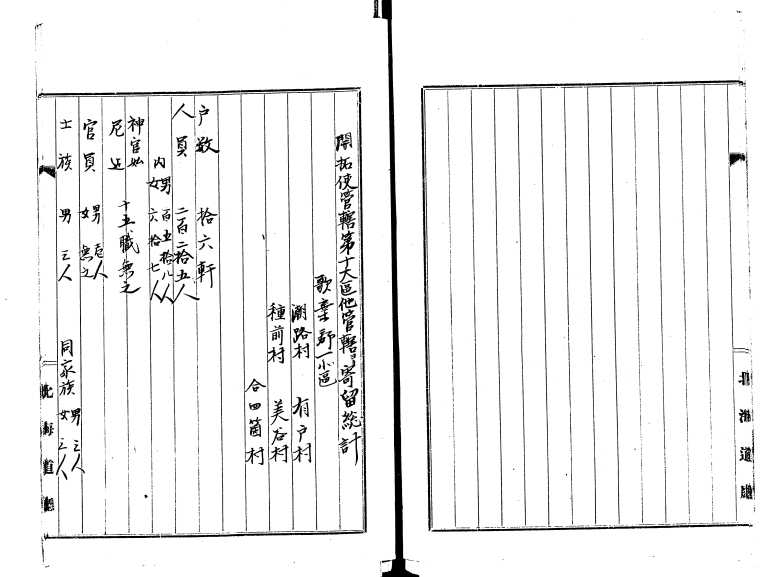 北海道廳
開拓使管轄第十大區他管轄ヨリ寄留統計
歌棄郡一小區
潮路村 有戸村
種前村 美谷村
合四箇村
戸数 拾六軒
人員 二百二拾五人
内 男 百五拾八人
女 六拾七人
神官ヨリ
尼迄 十五職無之
官員 男 壱人
女 無之
士族 男 三人
同家族 男 三人
女 三人
北海道廳